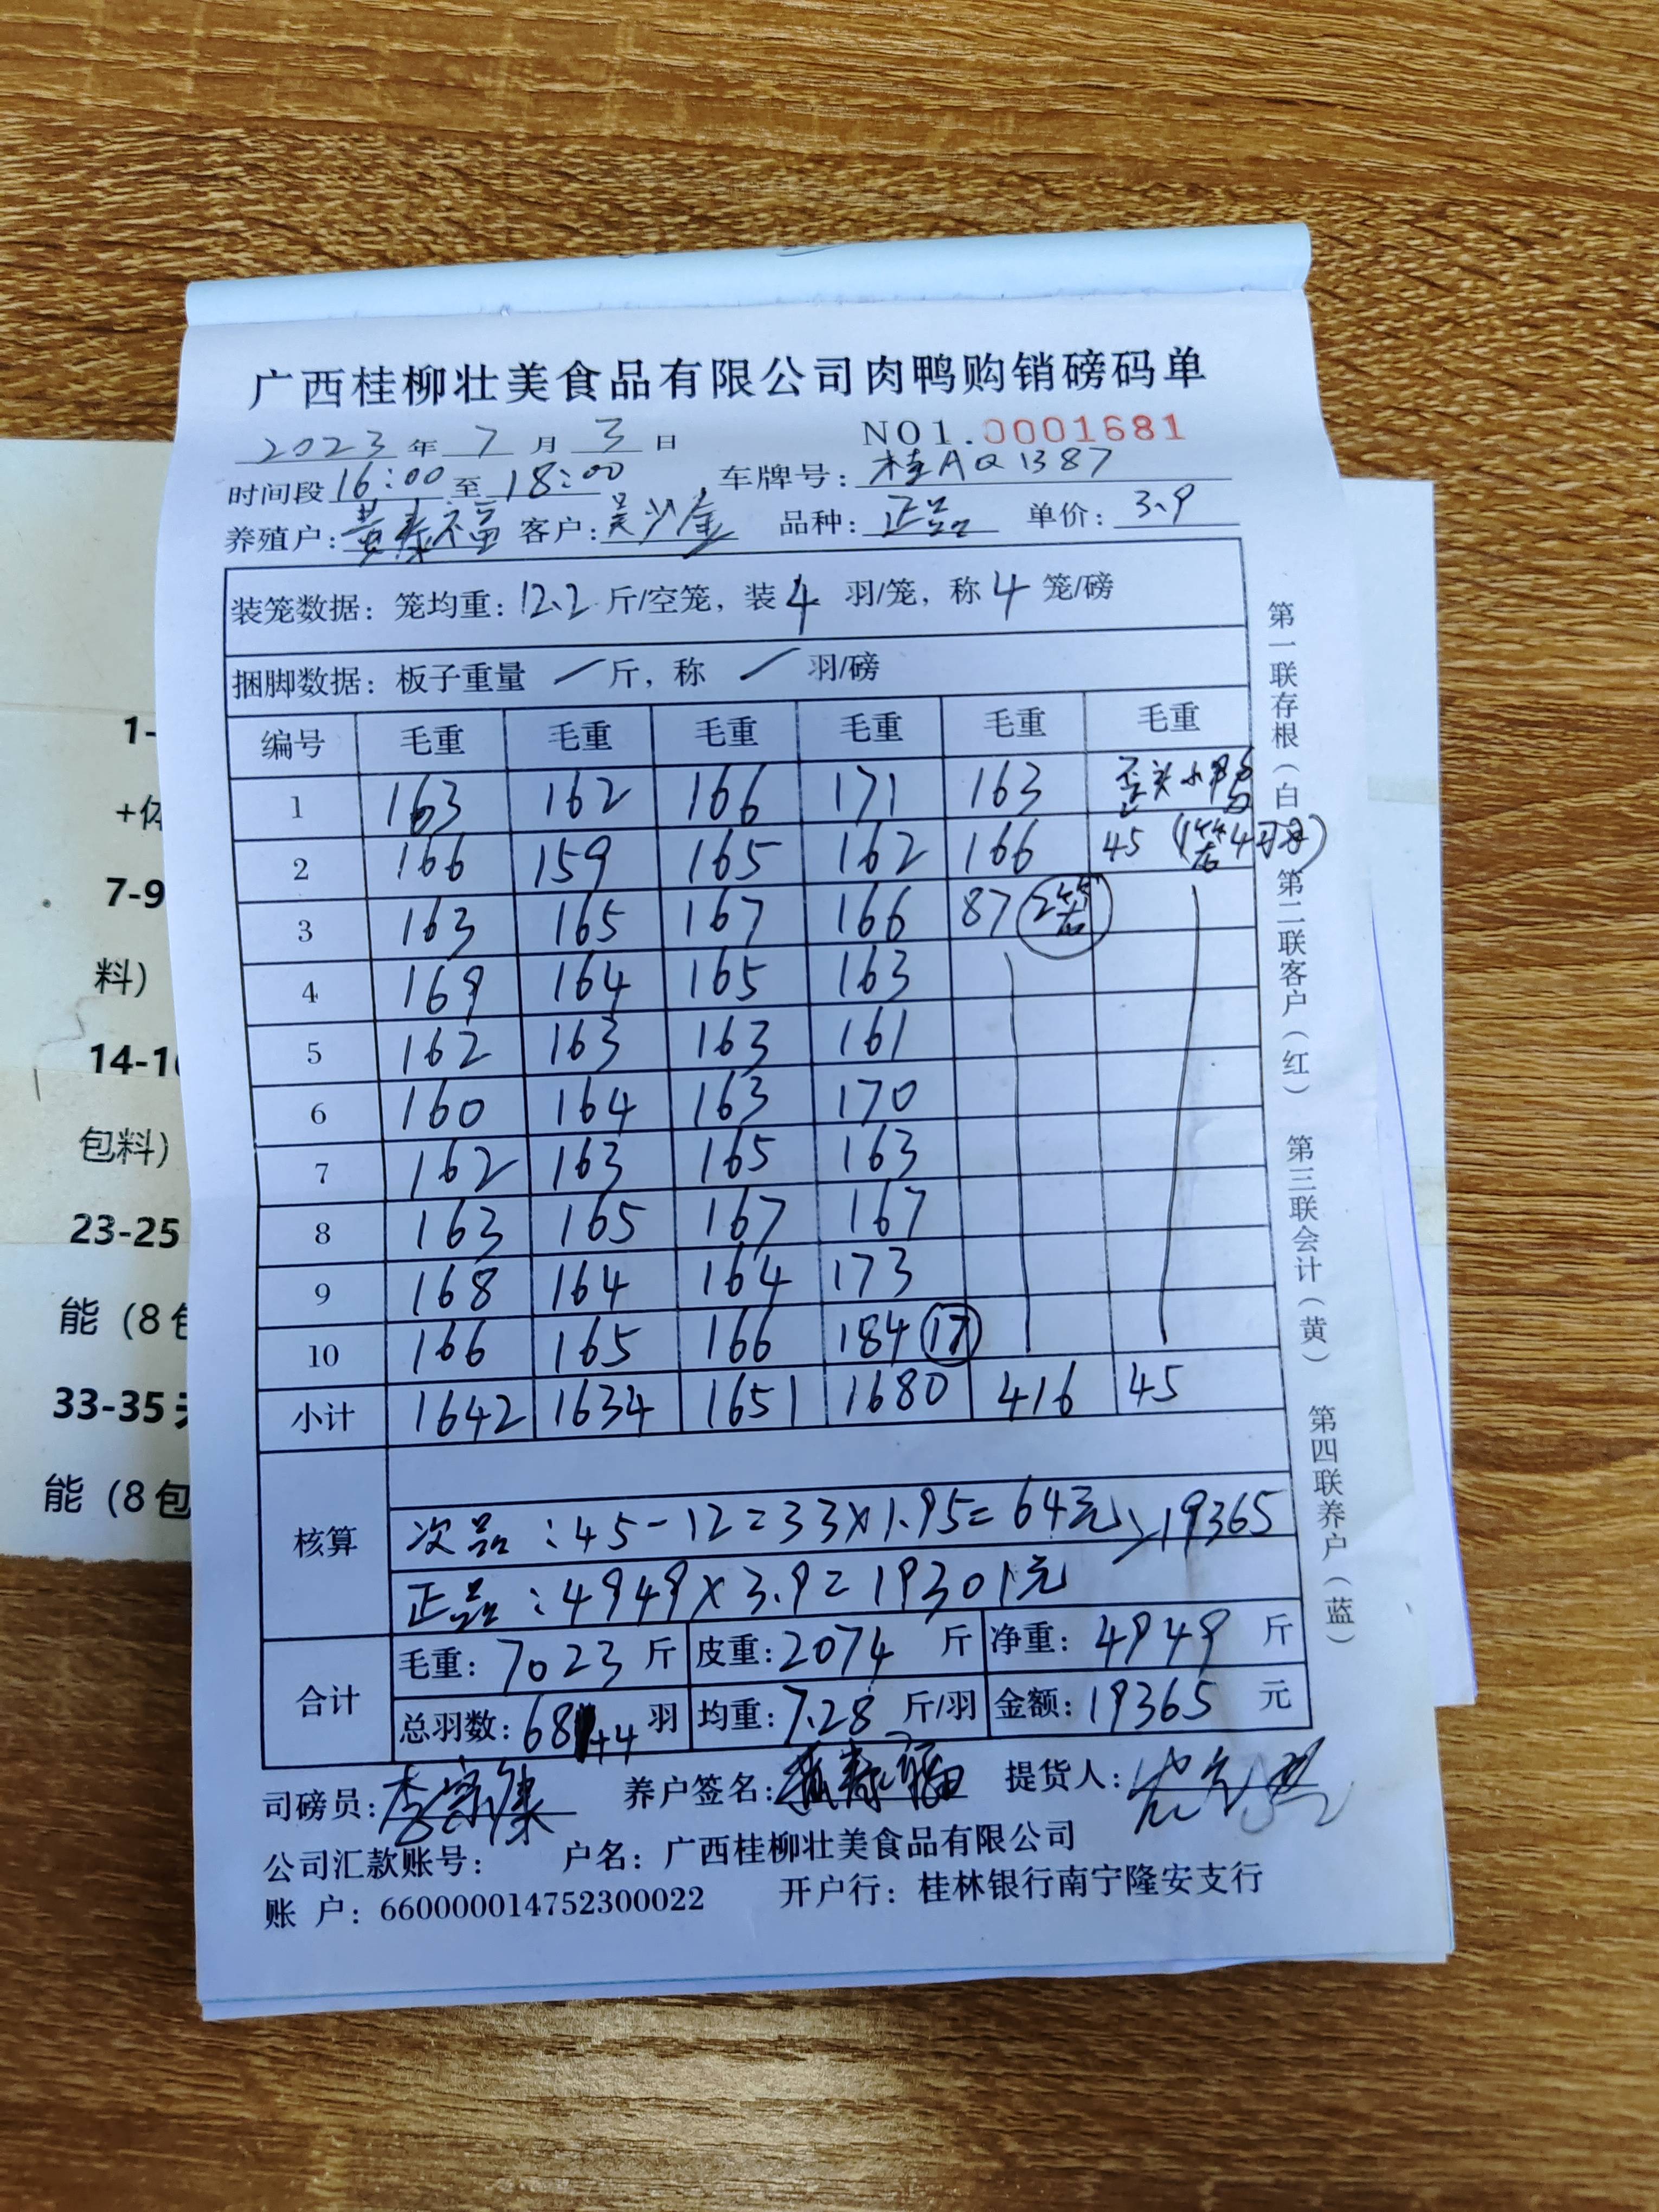 广西桂柳壮美食品有限公司肉鸭购销磅码单
2023 年 7 月 3 日 NO1.0001681
时间段 16:00 至 18:00 车牌号: 桂AQ1387
养殖户: 黄寿福 客户: 吴少金 品种: 正品 单价: 3.9
装笼数据: 笼均重: 12.2 斤/空笼, 装 4 羽/笼, 称 4 笼/磅
捆脚数据: 板子重量 / 斤, 称 / 羽/磅
编号 毛重 毛重 毛重 毛重 毛重 毛重
1 163 162 166 171 163 歪头小鸭
2 166 159 165 162 166 45 (1笼4羽)
3 163 165 167 166 87 2笼
4 169 164 165 163
5 162 163 163 161
6 160 164 163 170
7 162 163 165 163
8 163 165 167 167
9 168 164 164 173
10 166 165 166 184 17
小计 1642 1634 1651 1680 416 45
核算
次品:45-12=33×1.95=64元 19365
正品:4949×3.9=19301元
合计
毛重: 7023 斤 皮重: 2074 斤 净重: 4949 斤
总羽数: 681+4 羽 均重: 7.28 斤/羽 金额: 19365 元
司磅员: 养户签名: 黄寿福 提货人:
公司汇款账号: 户名: 广西桂柳壮美食品有限公司
账 户: 660000014752300022 开户行: 桂林银行南宁隆安支行
第一联存根(白) 第二联客户(红) 第三联会计(黄) 第四联养户(蓝)
1-
7-9
料)
14-1
包料)
23-25
能 (8
33-35
能 (8包